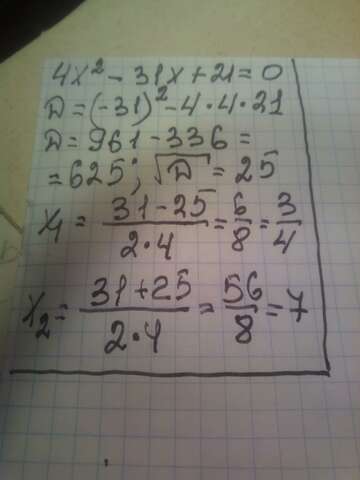 4x² - 31x + 21 = 0
D = (-31)² - 4·4·21
D = 961 - 336 =
= 625; √D = 25
x₁ = (31 - 25)/(2·4) = 6/8 = 3/4
x₂ = (31 + 25)/(2·4) = 56/8 = 7